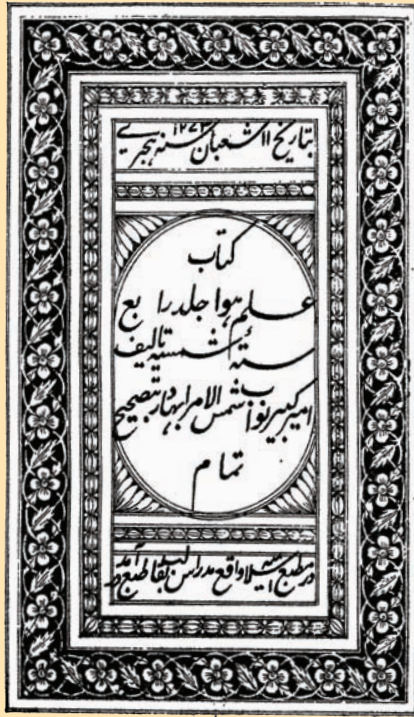 بتاریخ ۱۱ شعبان سنہ ہجری
کتاب
علم ہوا جلد رابع
ستۂ شمسیہ تالیف
امیر کبیر نواب شمس الامرا بہادر بتصحیح
تمام
در مطبع واقع مدراس بقالب طبع آمد